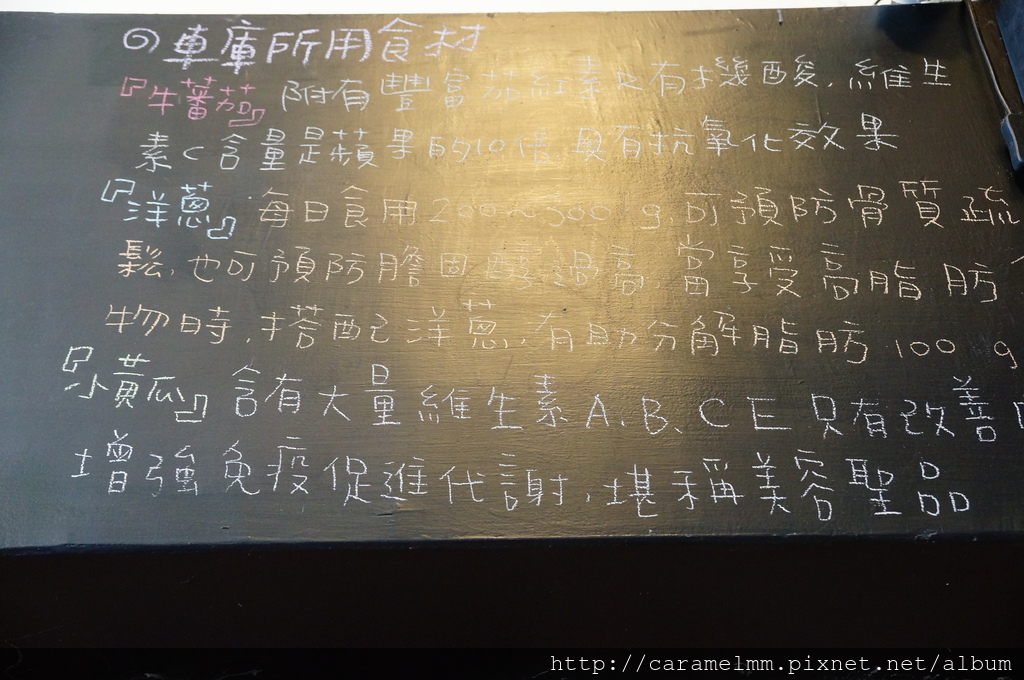 ◎車庫所用食材
『牛蕃茄』附有豐富茄紅素及有機酸,維生
素C含量是蘋果的10倍,具有抗氧化效果
『洋蔥』每日食用200~300g,可預防骨質疏
鬆,也可預防膽固醇過高,當享受高脂肪
物時,搭配洋蔥,有助分解脂肪100g
『小黃瓜』含有大量維生素A、B、C E 只有改善
增強免疫促進代謝,堪稱美容聖品
http://caramelmm.pixnet.net/album